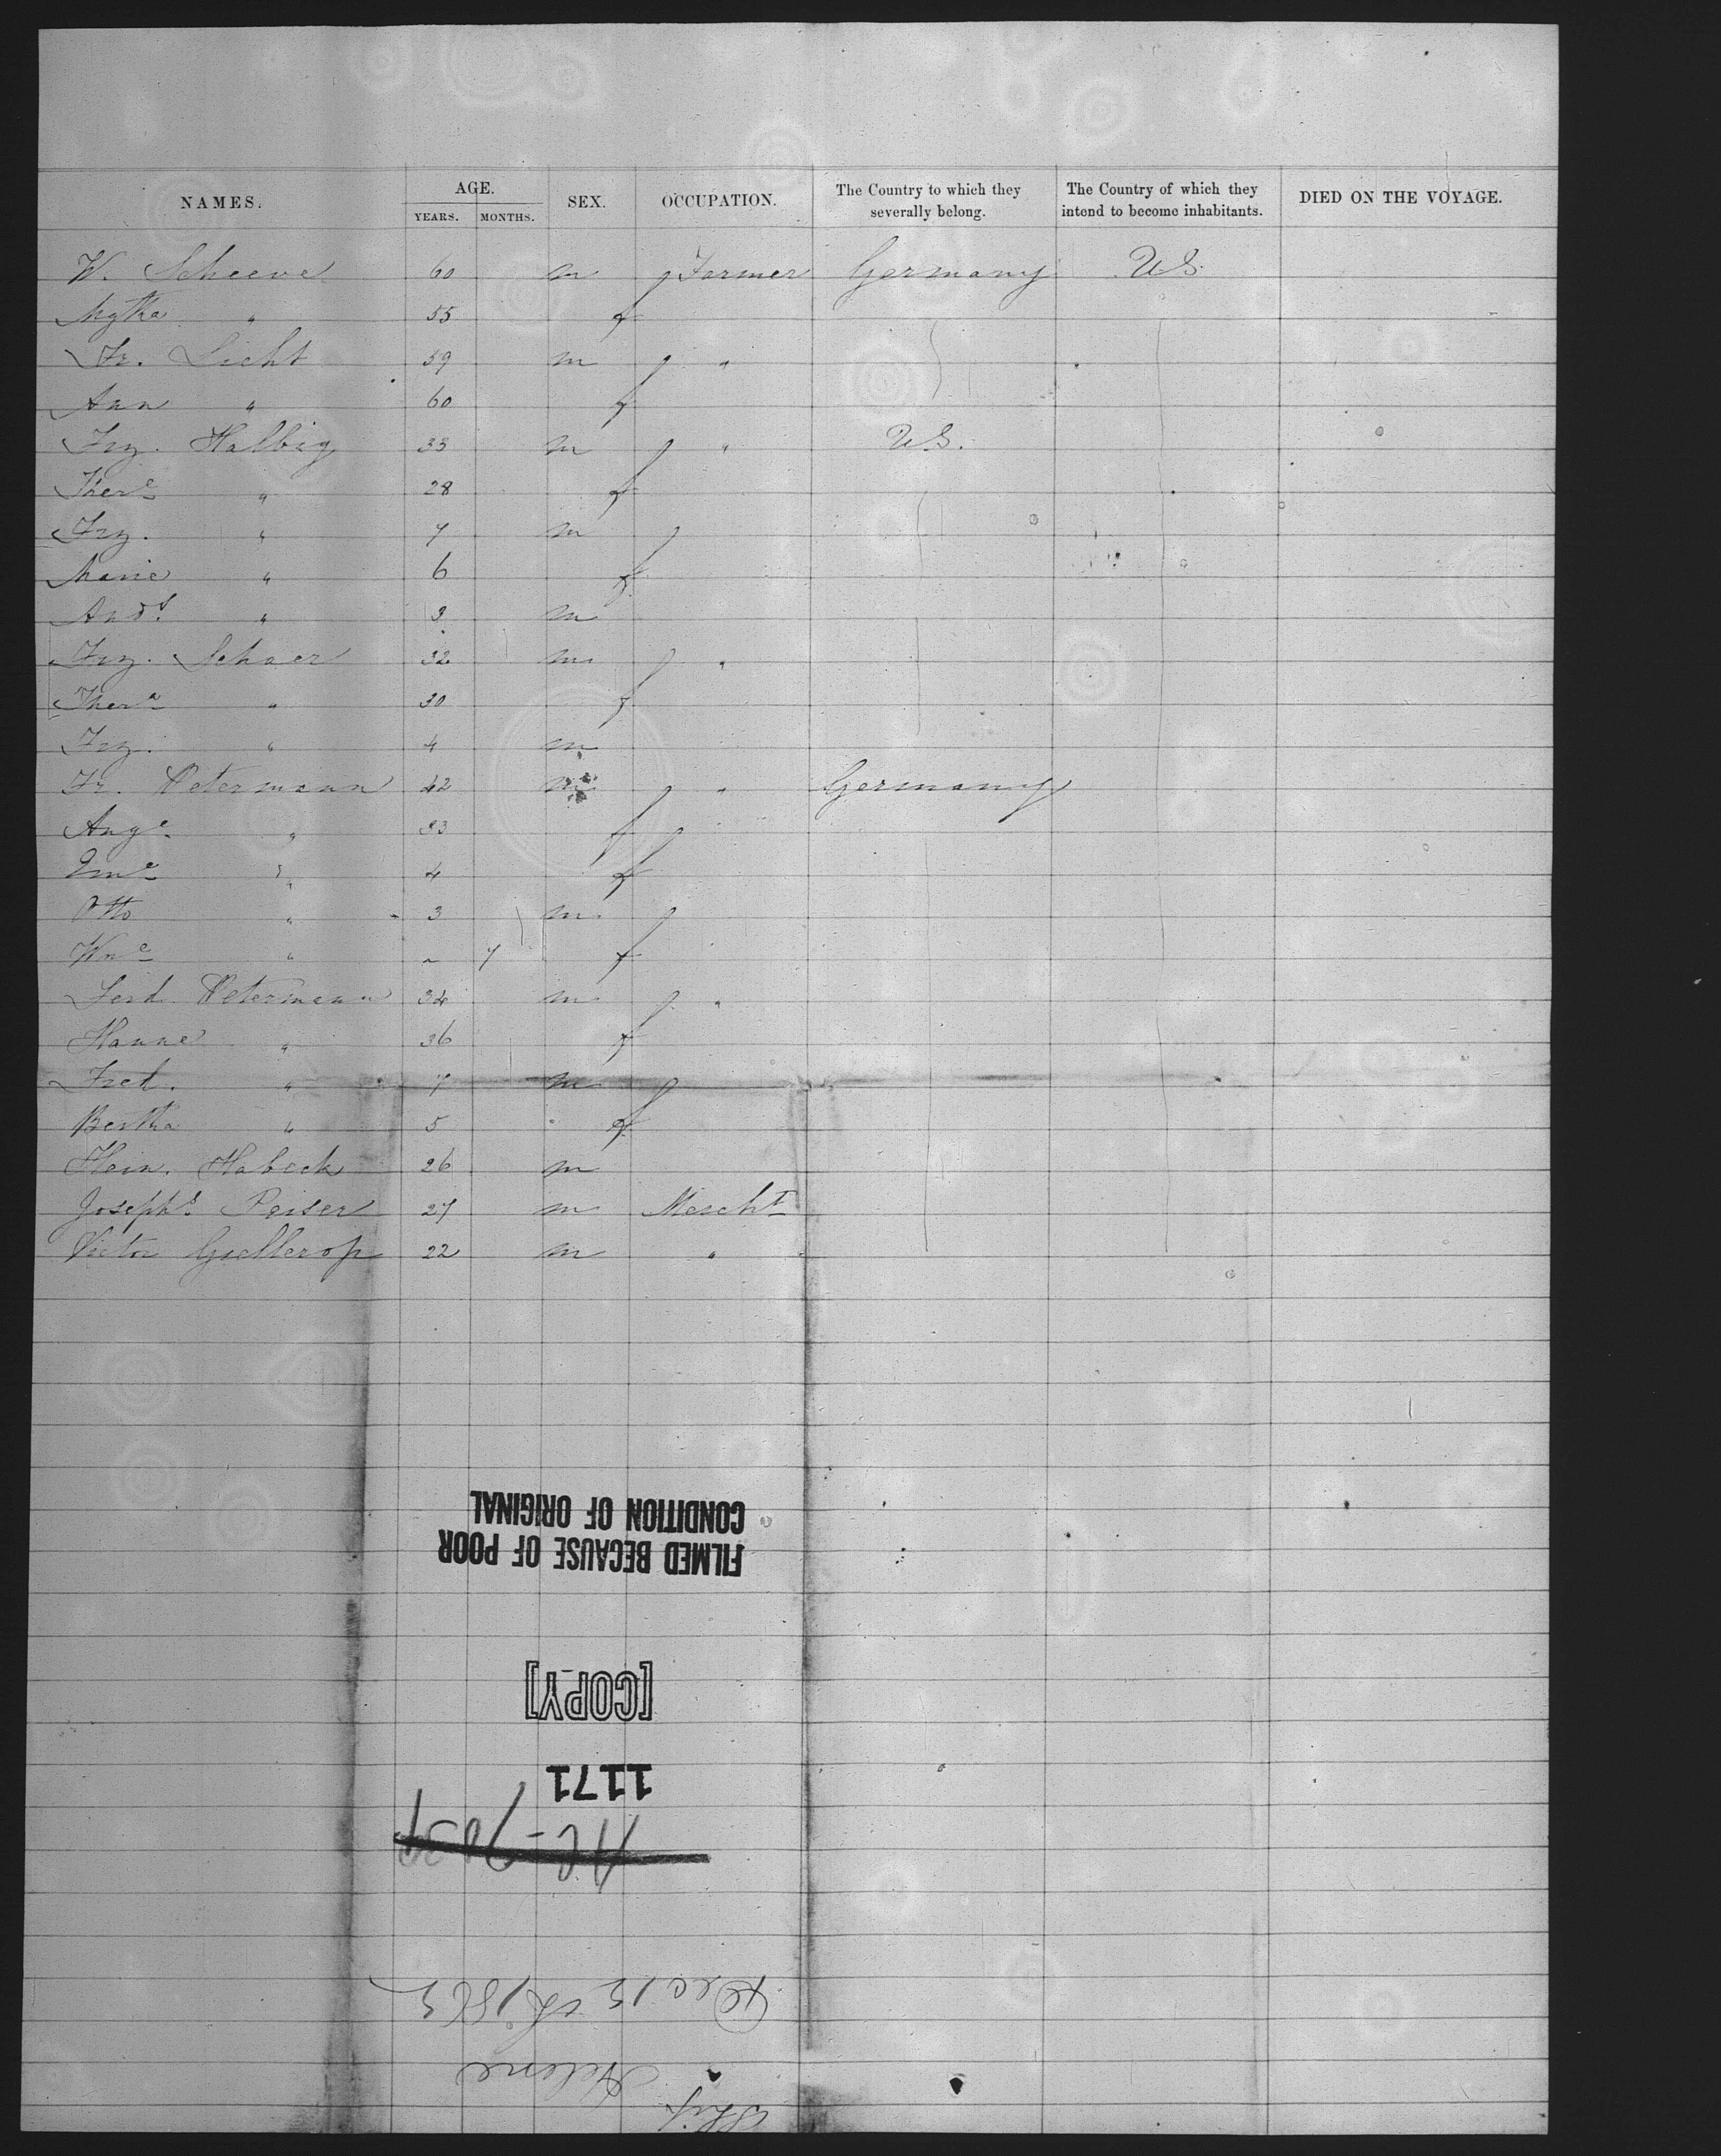 NAMES. AGE. SEX. OCCUPATION. The Country to which they severally belong. The Country of which they intend to become inhabitants. DIED ON THE VOYAGE.
YEARS. MONTHS.
W. Scheeve 60 m Farmer Germany U.S.
" 55 f
Fr. Licht 59 m "
Ann " 60 f
Frz. Halbig 33 m " U.S.
There " 28 f
Frz. " 7 m
Marie " 6 f
Ands " 3 m
Frz. Schaer 32 m "
Thera " 30 f
Frz. " 4 m
Fr. Petermann 42 m " Germany
Auge " 33 f
Eme " 4 f
Otto " 3 m
Wne " - 7 f
Ferd. Petermann 34 m "
Hanne " 36 f
Fred. " 7 m
Bertha " 5 f
Hein. Habeck 26 m
Josephs Peiser 27 m Mercht
Victor Gjellerop 22 m "
FILMED BECAUSE OF POOR
CONDITION OF ORIGINAL
[COPY]
1171
Ship
Helene